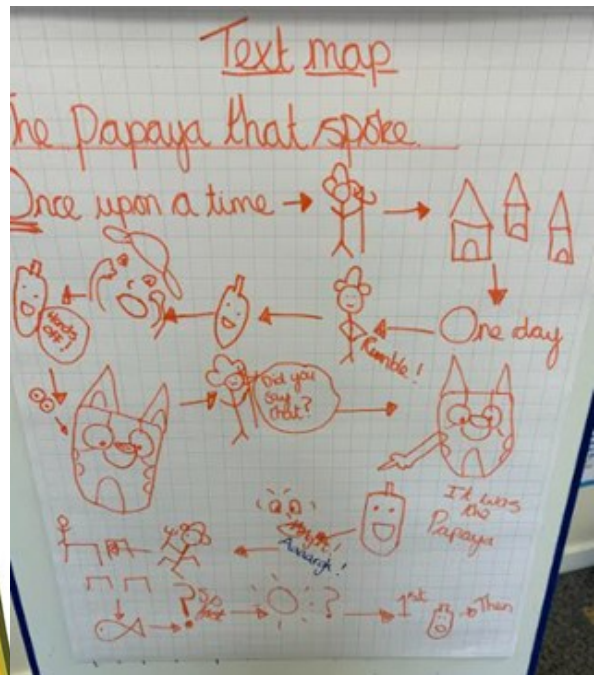 Text map
The Papaya that spoke.
Once upon a time
One day
Rumble!
Hands OFF!
Did you say that?
It was the Papaya
Aaaargh!
? so fast
?
1st
Then